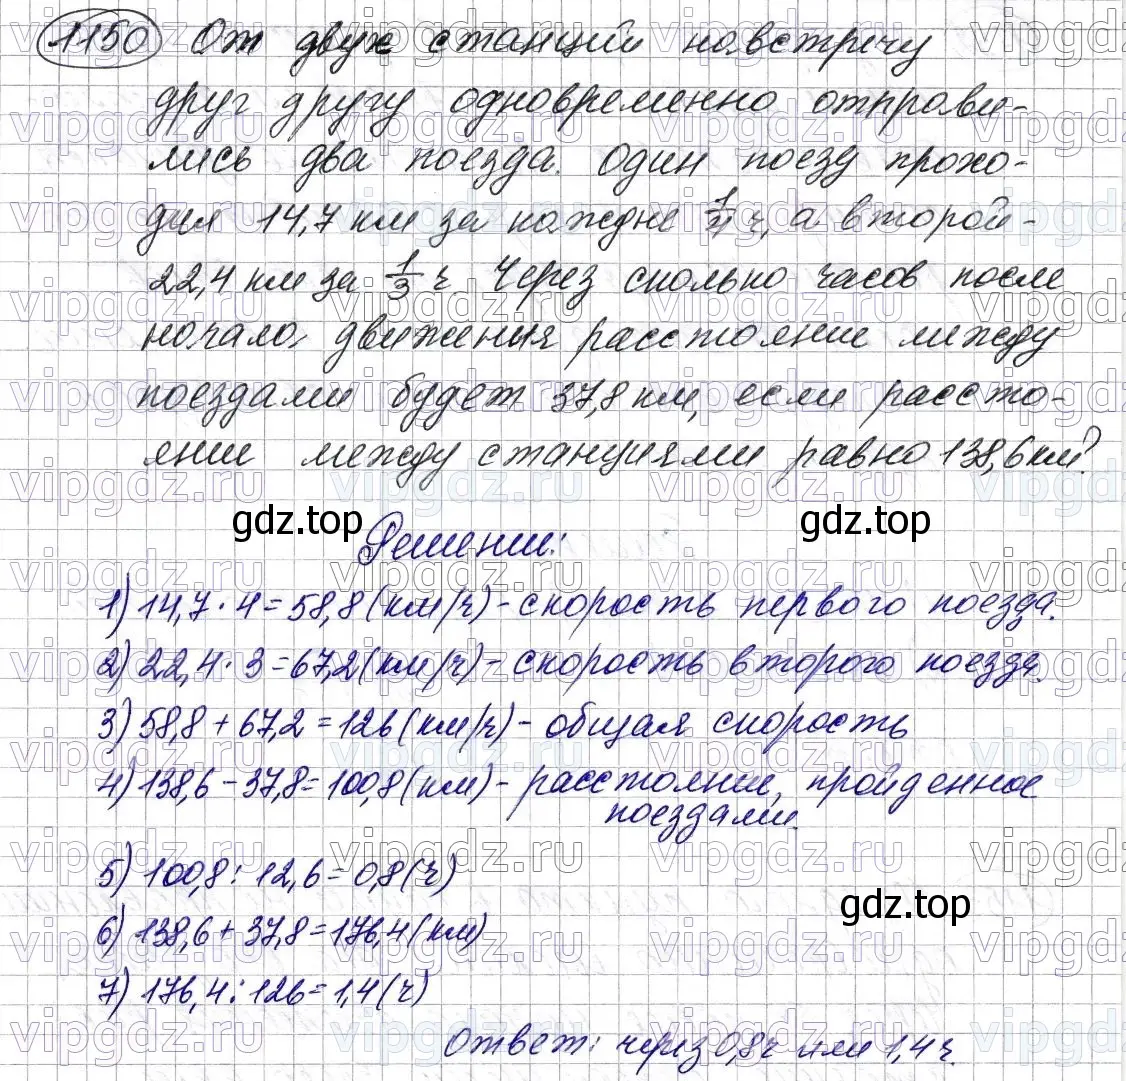 1150 От двух станций навстречу
друг другу одновременно отправи-
лись два поезда. Один поезд прохо-
дил 14,7 км за каждые 1/4 ч, а второй -
22,4 км за 1/3 ч. Через сколько часов после
начала движения расстояние между
поездами будет 37,8 км, если рассто-
яние между станциями равно 138,6 км?
gdz.top
Решение:
1) 14,7 · 4 = 58,8 (км/ч) - скорость первого поезда.
2) 22,4 · 3 = 67,2 (км/ч) - скорость второго поезда.
3) 58,8 + 67,2 = 126 (км/ч) - общая скорость
4) 138,6 - 37,8 = 100,8 (км) - расстояние, пройденное
поездами.
5) 100,8 : 12,6 = 0,8 (ч)
gdz.top
6) 138,6 + 37,8 = 176,4 (км)
7) 176,4 : 126 = 1,4 (ч)
Ответ: через 0,8 ч или 1,4 ч.
vipgdz.ru